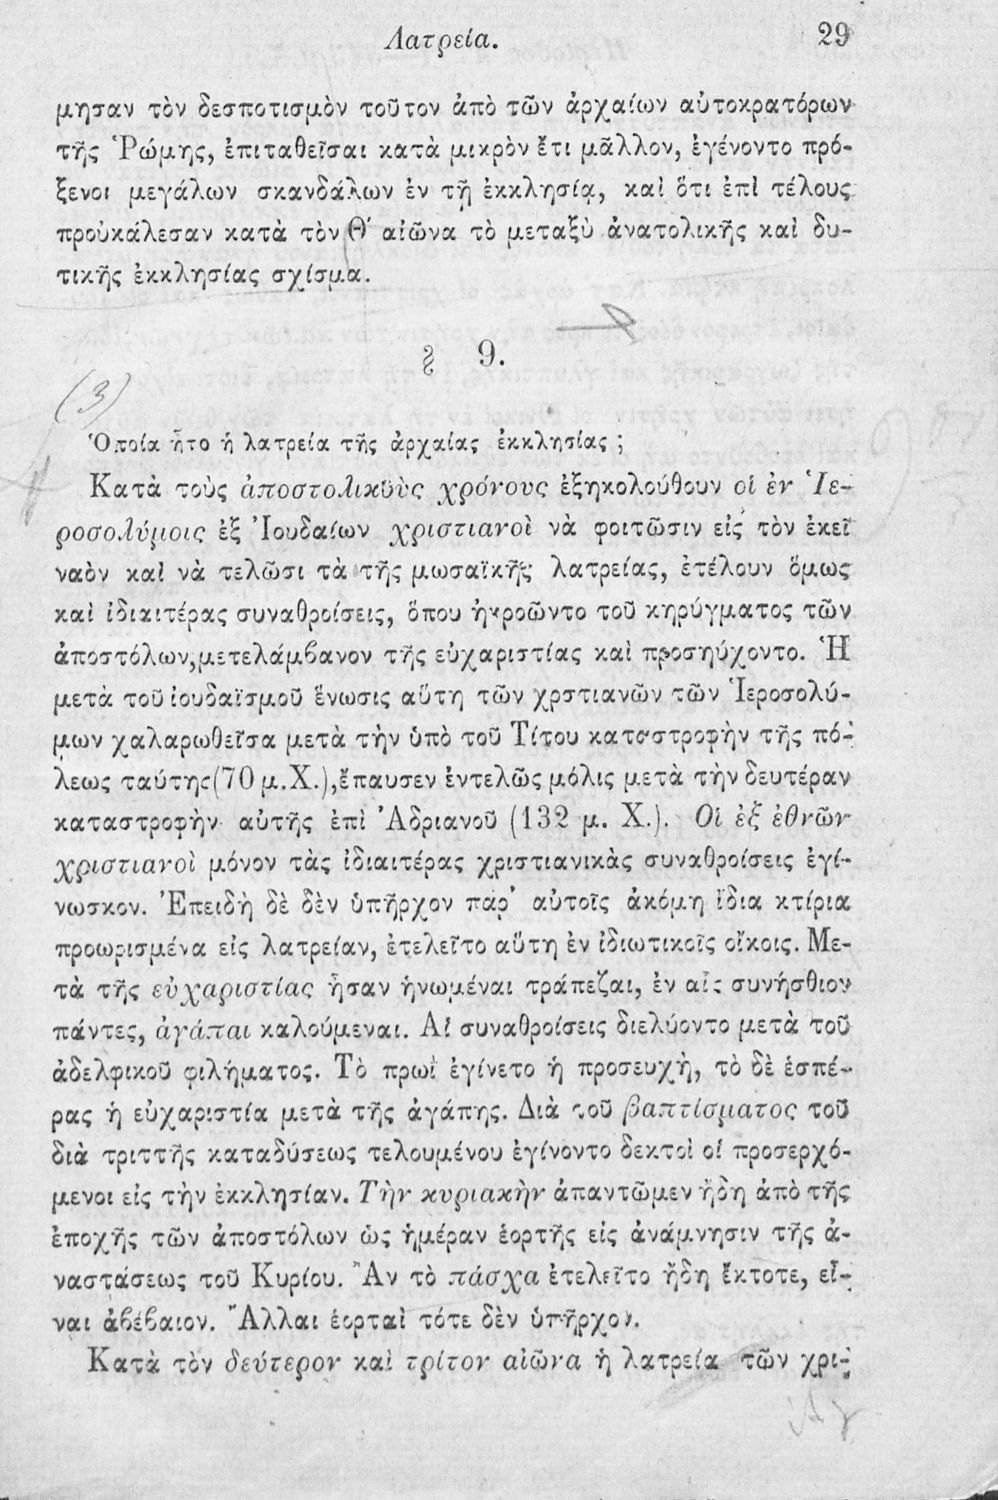 Λατρεία. 29
μησαν τὸν δεσποτισμὸν τοῦτον ἀπὸ τῶν ἀρχαίων αὐτοκρατόρων
τῆς Ῥώμης, ἐπιταθεῖσαι κατὰ μικρὸν ἔτι μᾶλλον, ἐγένοντο πρό-
ξενοι μεγάλων σκανδάλων ἐν τῇ ἐκκλησίᾳ, καὶ ὅτι ἐπὶ τέλους
προὐκάλεσαν κατὰ τὸν Θ΄ αἰῶνα τὸ μεταξὺ ἀνατολικῆς καὶ δυ-
τικῆς ἐκκλησίας σχίσμα.
§ 9.
(3)
Ὁποία ἦτο ἡ λατρεία τῆς ἀρχαίας ἐκκλησίας ;
Κατὰ τοὺς ἀποστολικοὺς χρόνους ἐξηκολούθουν οἱ ἐν Ἱε-
ροσολύμοις ἐξ Ἰουδαίων χριστιανοὶ νὰ φοιτῶσιν εἰς τὸν ἐκεῖ
ναὸν καὶ νὰ τελῶσι τὰ τῆς μωσαϊκῆς λατρείας, ἐτέλουν ὅμως
καὶ ἰδιαιτέρας συναθροίσεις, ὅπου ἠκροῶντο τοῦ κηρύγματος τῶν
ἀποστόλων, μετελάμβανον τῆς εὐχαριστίας καὶ προσηύχοντο. Ἡ
μετὰ τοῦ ἰουδαϊσμοῦ ἕνωσις αὕτη τῶν χρστιανῶν τῶν Ἱεροσολύ-
μων χαλαρωθεῖσα μετὰ τὴν ὑπὸ τοῦ Τίτου καταστροφὴν τῆς πό-
λεως ταύτης (70 μ.Χ.), ἔπαυσεν ἐντελῶς μόλις μετὰ τὴν δευτέραν
καταστροφὴν αὐτῆς ἐπὶ Ἀδριανοῦ (132 μ. Χ.). Οἱ ἐξ ἐθνῶν
χριστιανοὶ μόνον τὰς ἰδιαιτέρας χριστιανικὰς συναθροίσεις ἐγί-
νωσκον. Ἐπειδὴ δὲ δὲν ὑπῆρχον παρ’ αὐτοῖς ἀκόμη ἴδια κτίρια
προωρισμένα εἰς λατρείαν, ἐτελεῖτο αὕτη ἐν ἰδιωτικοῖς οἴκοις. Με-
τὰ τῆς εὐχαριστίας ἦσαν ἡνωμέναι τράπεζαι, ἐν αἷς συνήσθιον
πάντες, ἀγάπαι καλούμεναι. Αἱ συναθροίσεις διελύοντο μετὰ τοῦ
ἀδελφικοῦ φιλήματος. Τὸ πρωῒ ἐγίνετο ἡ προσευχὴ, τὸ δὲ ἑσπέ-
ρας ἡ εὐχαριστία μετὰ τῆς ἀγάπης. Διὰ τοῦ βαπτίσματος τοῦ
διὰ τριττῆς καταδύσεως τελουμένου ἐγίνοντο δεκτοὶ οἱ προσερχό-
μενοι εἰς τὴν ἐκκλησίαν. Τὴν κυριακὴν ἀπαντῶμεν ἤδη ἀπὸ τῆς
ἐποχῆς τῶν ἀποστόλων ὡς ἡμέραν ἑορτῆς εἰς ἀνάμνησιν τῆς ἀ-
ναστάσεως τοῦ Κυρίου. Ἂν τὸ πάσχα ἐτελεῖτο ἤδη ἔκτοτε, εἶ-
ναι ἀβέβαιον. Ἄλλαι ἑορταὶ τότε δὲν ὑπῆρχον.
Κατὰ τὸν δεύτερον καὶ τρίτον αἰῶνα ἡ λατρεία τῶν χρι-